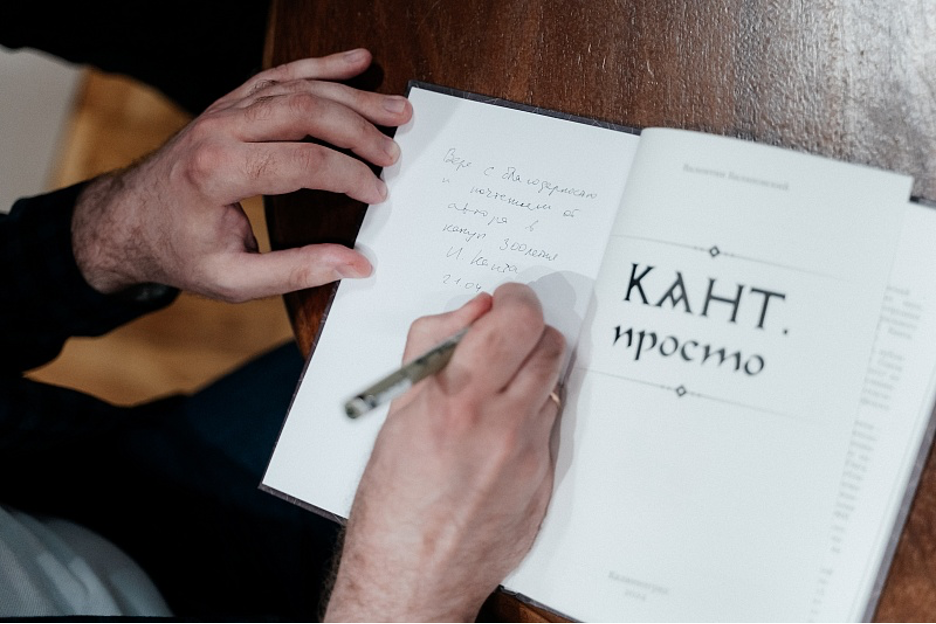 Вере с благодарностью
и почтением от
автора в
канун 300летия
И. Канта
21.04.
КАНТ.
просто
Калининград